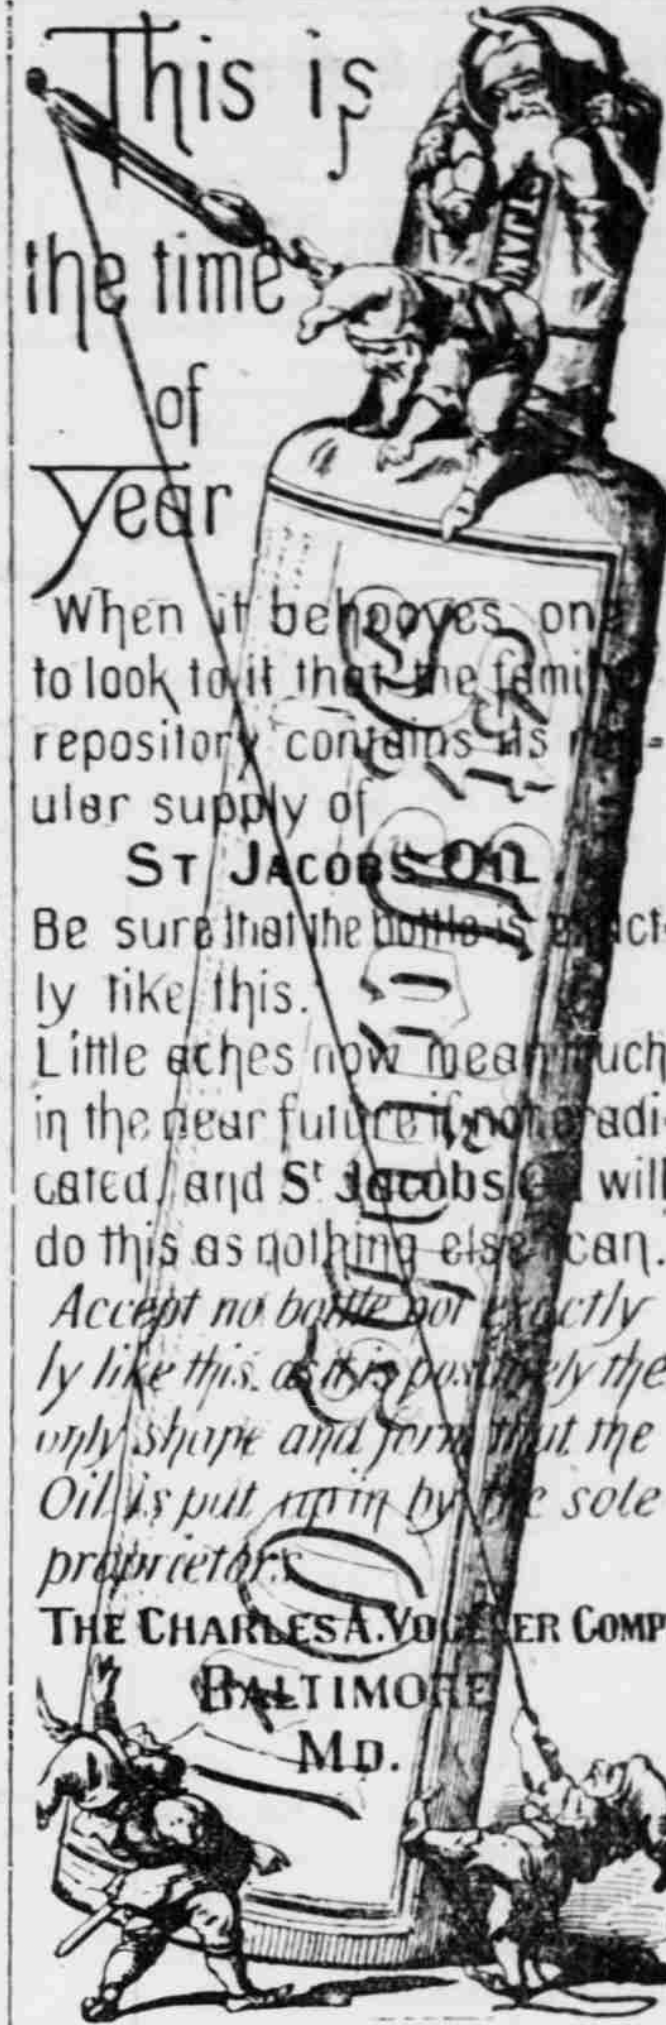 This is
the time
of
Year
When it behooves one
to look to it that the family
repository contains its reg-
ular supply of
ST JACOBS OIL
Be sure that the bottle is exact-
ly like this.
Little aches now mean much
in the near future if not eradi-
cated, and St Jacobs Oil will
do this as nothing else can.
Accept no bottle not exactly
ly like this. as it is positively the
only shape and form that the
Oil is put up in by the sole
proprietors
THE CHARLES A. VOGELER COMP
BALTIMORE
MD.